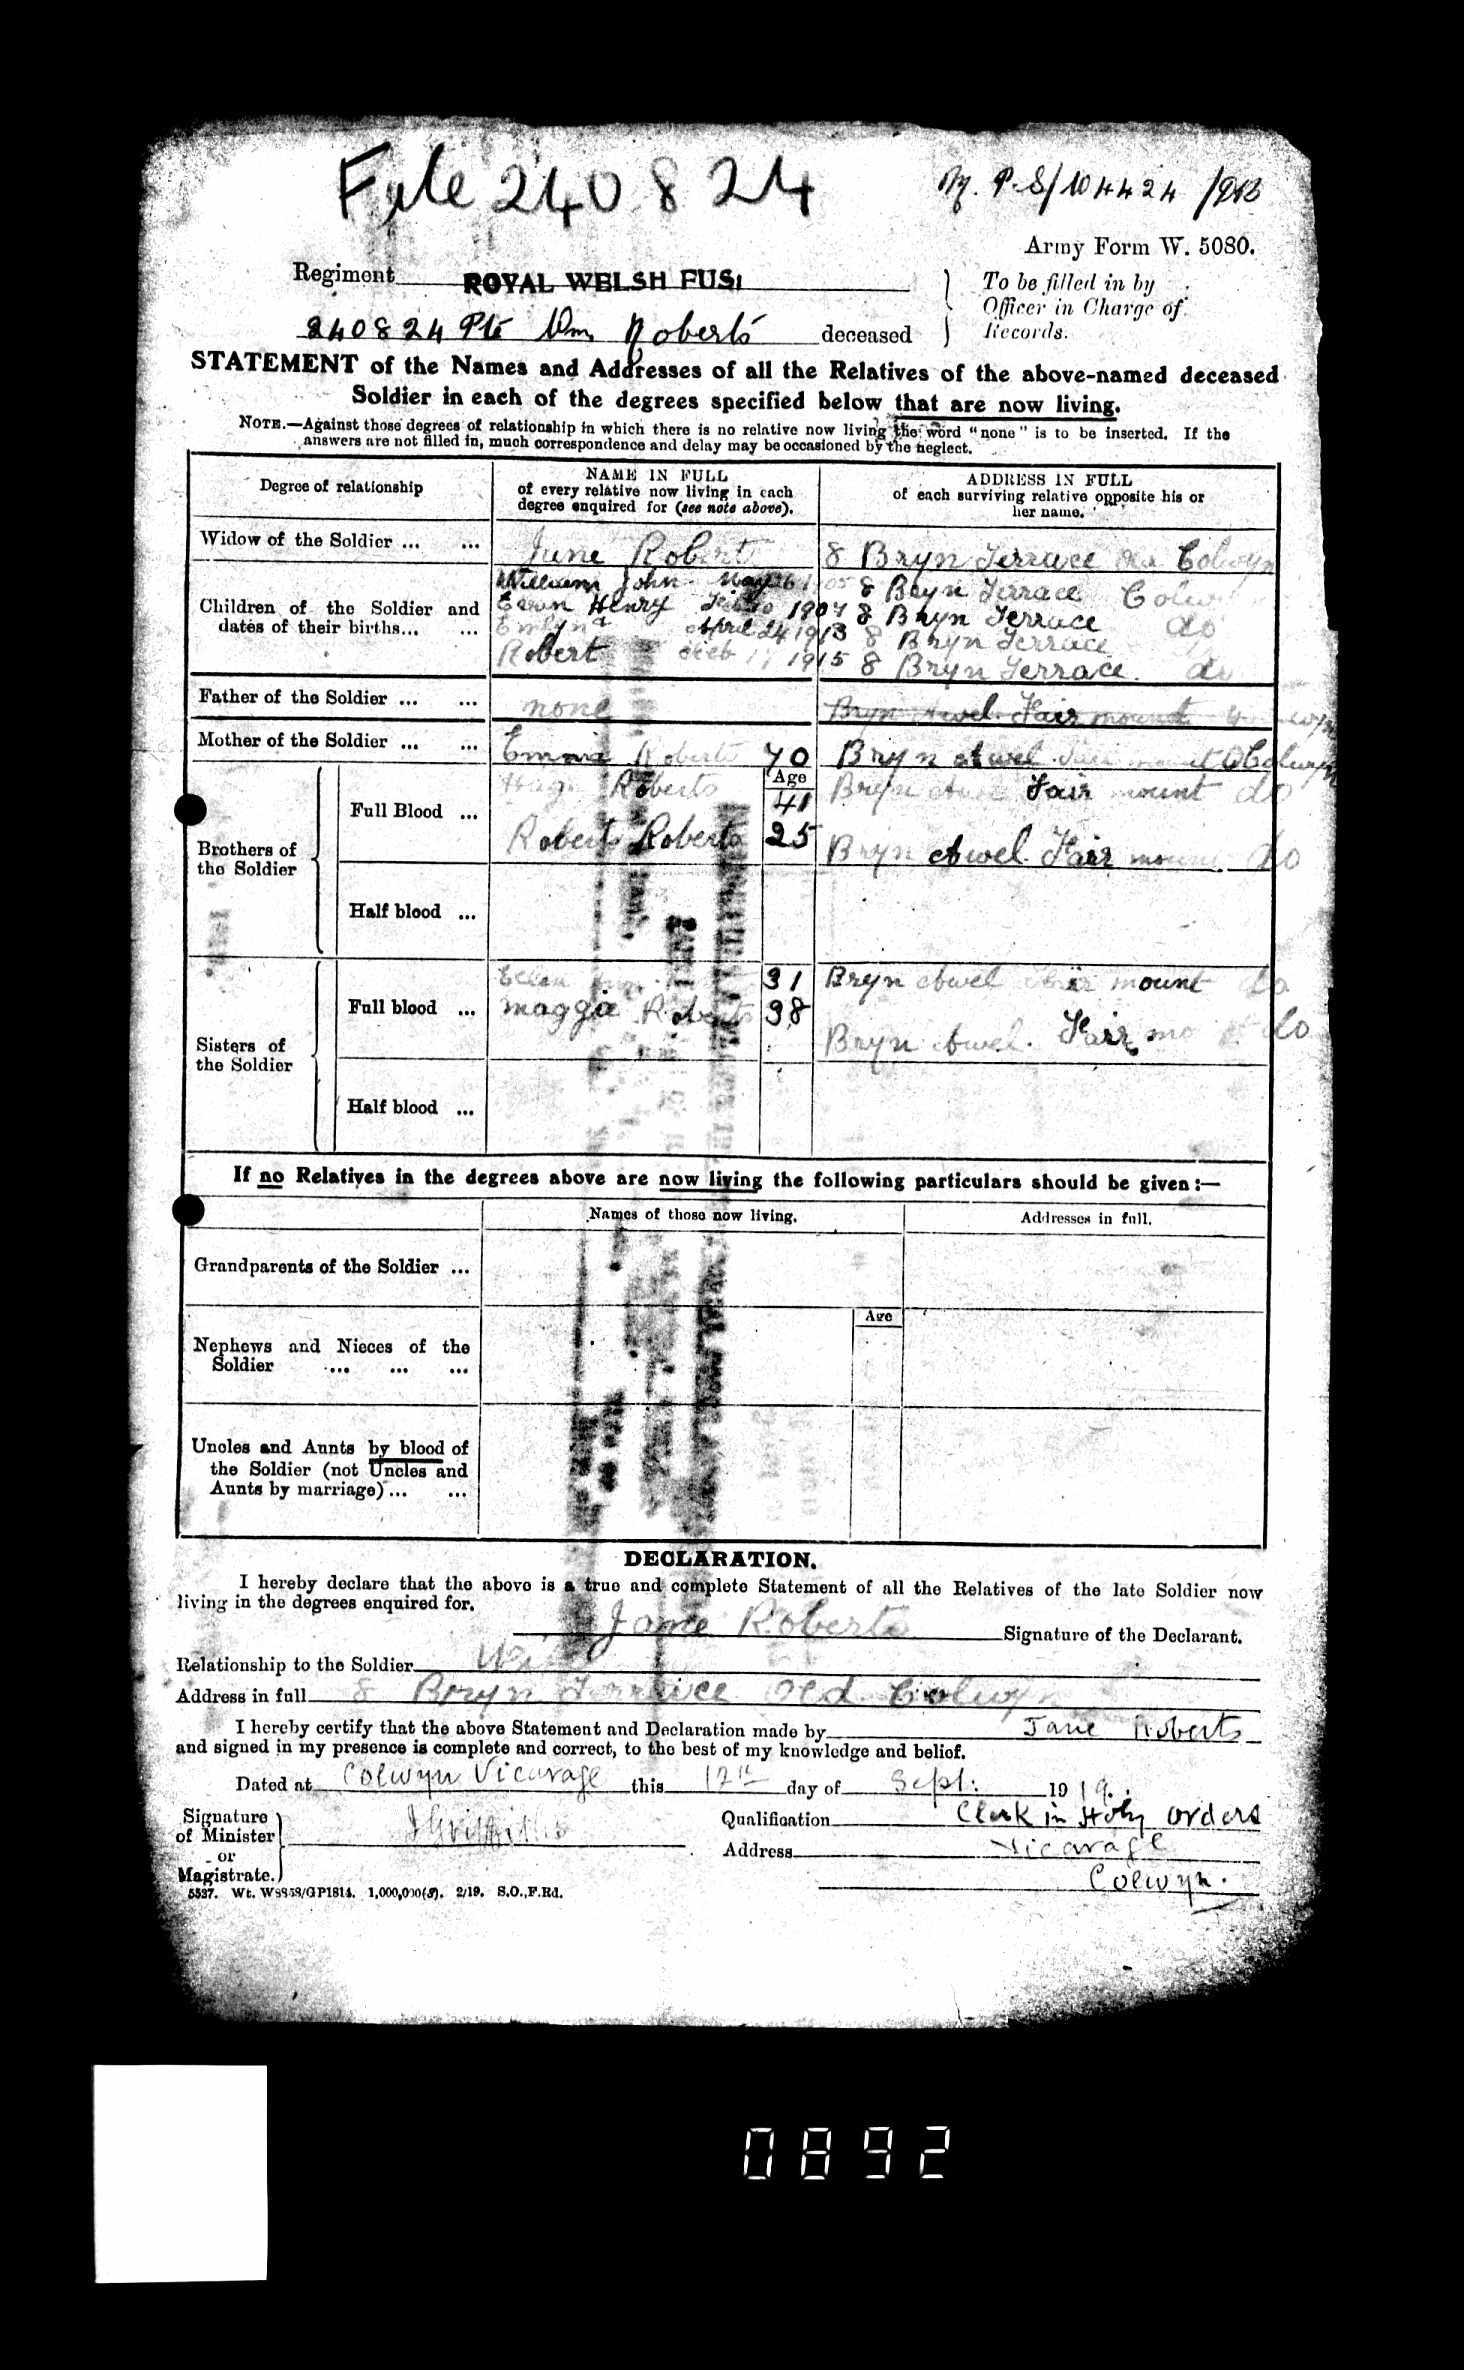 File 240824
Army Form W. 5080.
Regiment ROYAL WELSH FUSI
240824 Pte Wm Roberts deceased
To be filled in by
Officer in Charge of
Records.
STATEMENT of the Names and Addresses of all the Relatives of the above-named deceased
Soldier in each of the degrees specified below that are now living.
NOTE.—Against those degrees of relationship in which there is no relative now living the word "none" is to be inserted. If the
answers are not filled in, much correspondence and delay may be occasioned by the neglect.
Degree of relationship
NAME IN FULL
of every relative now living in each
degree enquired for (see note above).
ADDRESS IN FULL
of each surviving relative opposite his or
her name.
Widow of the Soldier ... ...
Jane Roberts
8 Bryn Terrace Colwyn
Children of the Soldier and
dates of their births... ...
William John May 26 1905 8 Bryn Terrace Colwyn
Henry 1907 8 Bryn Terrace do
April 24 1913 8 Bryn Terrace
Robert Feb 1915 8 Bryn Terrace. do
Father of the Soldier ... ...
none
Bryn Awel Fair mount
Mother of the Soldier ... ...
Emma Roberts 70 Bryn Awel Fair mount O Colwyn
Age
Brothers of
the Soldier
Full Blood ...
Hugh Roberts 41 Bryn Awel Fair mount do
Robert Roberts 25 Bryn Awel Fair mount do
Half blood ...
Sisters of
the Soldier
Full blood ...
Ellen 31 Bryn Awel Fair mount do
Maggie Roberts 38 Bryn Awel. Fair mount do
Half blood ...
If no Relatives in the degrees above are now living the following particulars should be given:—
Names of those now living.
Addresses in full.
Grandparents of the Soldier ...
Age
Nephews and Nieces of the
Soldier ... ... ...
Uncles and Aunts by blood of
the Soldier (not Uncles and
Aunts by marriage) ... ...
DECLARATION.
I hereby declare that the above is a true and complete Statement of all the Relatives of the late Soldier now
living in the degrees enquired for.
Jane Roberts Signature of the Declarant.
Relationship to the Soldier
Address in full 8 Bryn Terrace Old Colwyn
I hereby certify that the above Statement and Declaration made by Jane Roberts
and signed in my presence is complete and correct, to the best of my knowledge and belief.
Dated at Colwyn Vicarage this 17th day of Sept. 1919.
Signature
of Minister
or
Magistrate.
J Griffiths
Qualification Clerk in Holy Orders
Address Vicarage
Colwyn.
5527. Wt. W8858/GP1814. 1,000,000(8). 2/19. S.O.,F.Rd.
0892